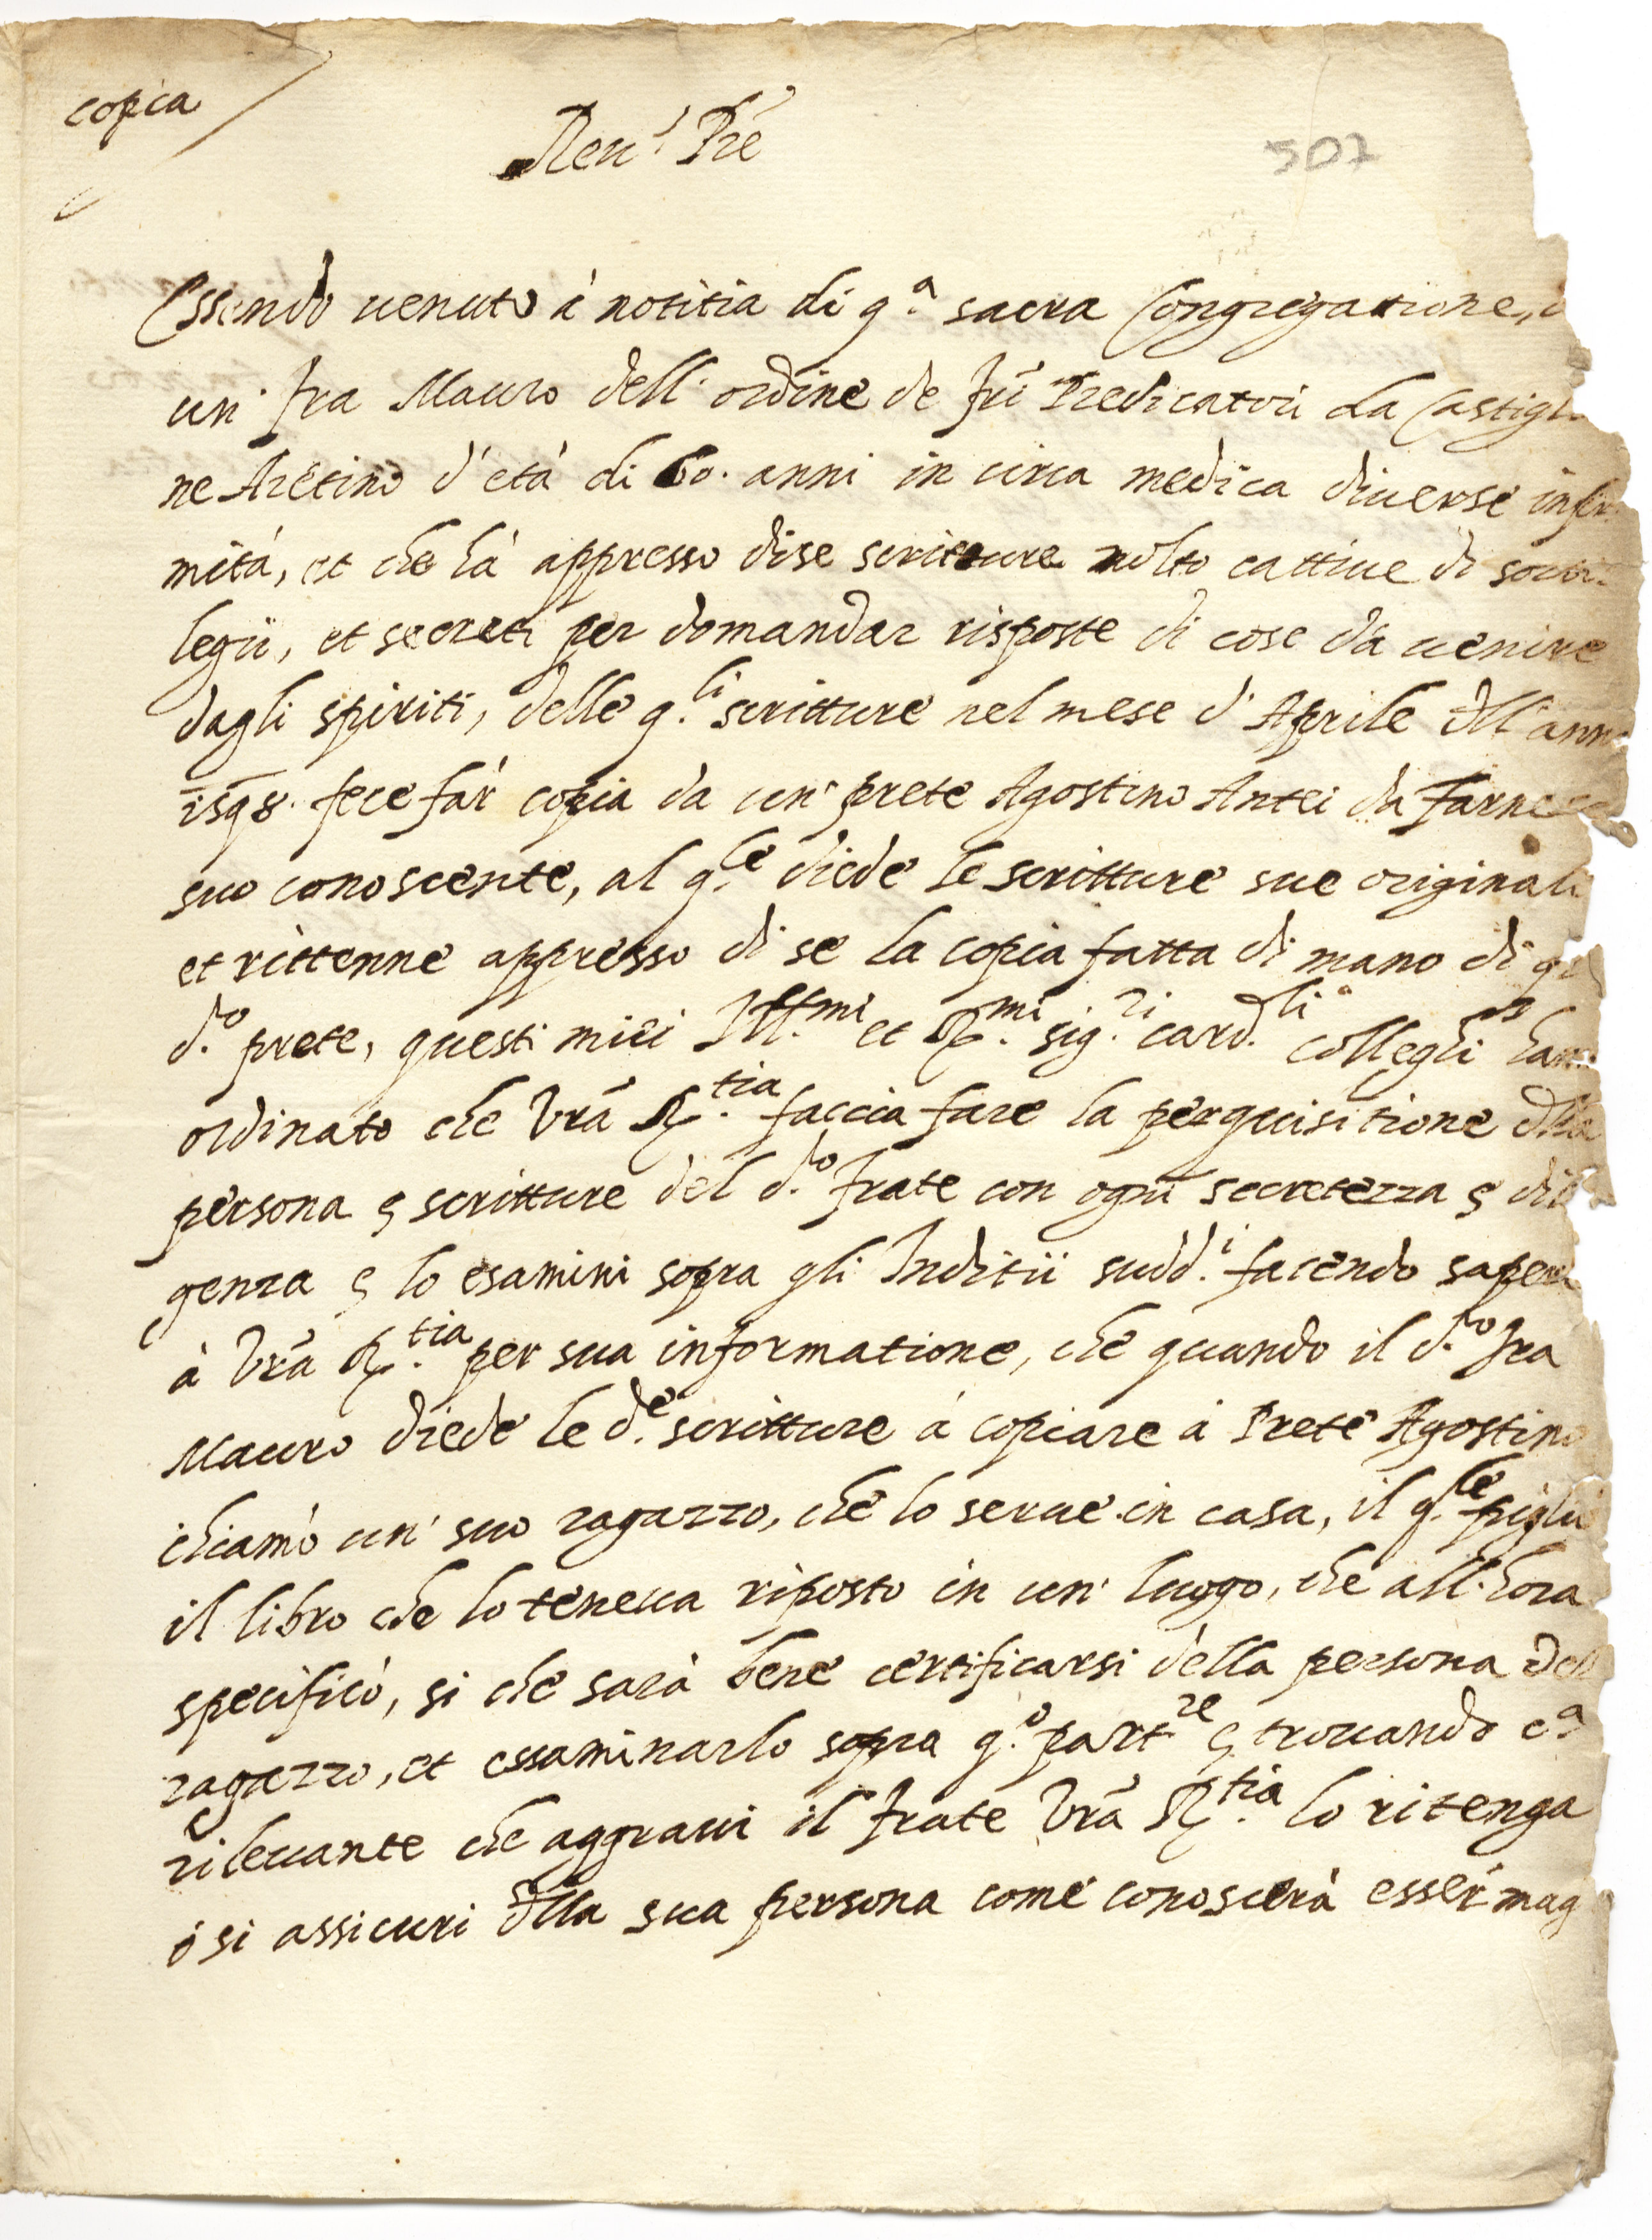 copia
Reu.do P̃re
507
Essendo uenuto à notitia di q.a sacra Congregatione,
un' fra Mauro dell' ordine de fr̃i Predicatori da Castigl
ne Aretino d'età di 60. anni in circa medica diuerse infir
mità, et che hà appresso dise scritture molto cattiue di sorti
legii, et secreti per domandar risposte di cose da uenire
dagli spiriti, delle q.li scritture nel mese d'Aprile dell'ann
1598. fece far copia da un' prete Agostino Antei da Farnes
suo conoscente, al q.le diede le scritture sue originali
et rittenne appresso di se la copia fatta di mano di q
d.o prete, questi miei Ill.mi et R.mi sig.ri card.li colleghi han
ordinato che Vrã R.tia faccia fare la perquisitione della
persona e scritture del d.o frate con ogni secretezza e dili
genza e lo esamini sopra gli Inditii sudd.i facendo saper
à Vrã R.tia per sua informatione, che quando il d.o fra
Mauro diede le d.e scritture à copiare à Prete Agostino
chiamò un' suo ragazzo, che lo serue in casa, il q.le piglio
il libro che lo teneua riposto in un' luogo, che all'hora
specificò, si che sarà bene certificarsi della persona del
ragazzo, et essaminarlo sopra q.o part.re e trouando c.a
rileuante che aggraui il frate Vrã R.tia lo ritenga
ò si assicuri della sua persona come conoscerà esser mag